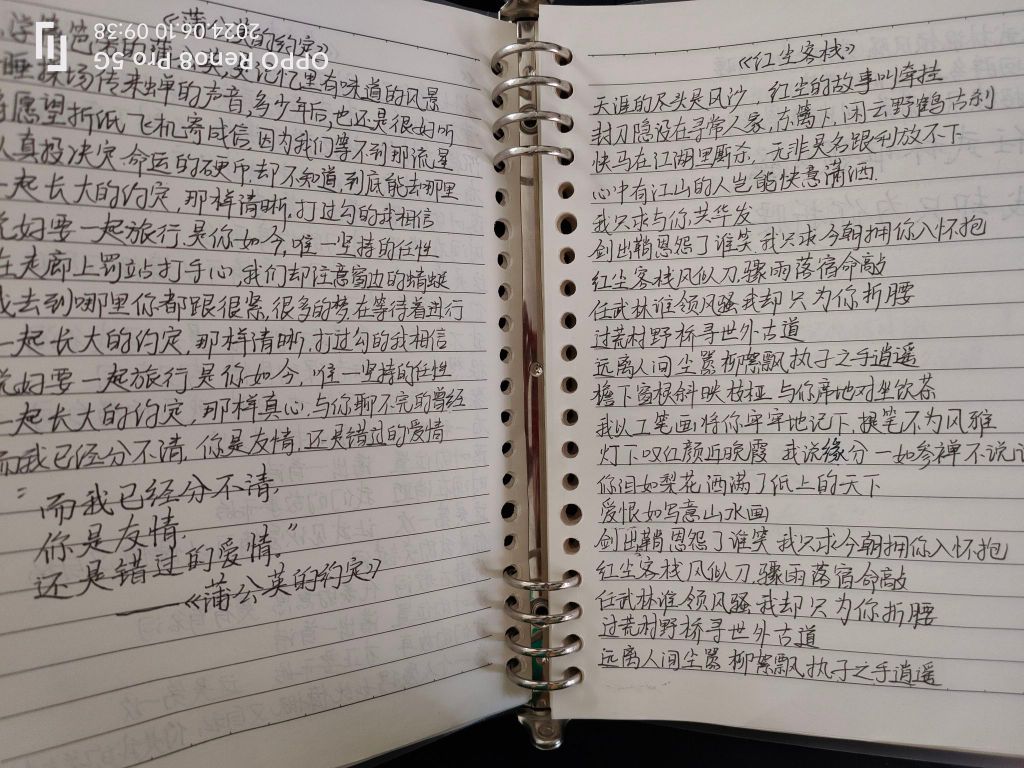 《蒲公英的约定》
小学篱芭旁的蒲公英,是记忆里有味道的风景
睡操场传来蝉的声音,多少年后,也还是很好听
将愿望折纸飞机寄成信 因为我们等不到那流星
认真投决定命运的硬币却不知道到底能去哪里
一起长大的约定,那样清晰,打过勾的我相信
说好要一起旅行,是你如今,唯一坚持的任性
在走廊上罚站打手心,我们却注意窗边的蜻蜓
我去到哪里你都跟很紧,很多的梦在等待着进行
一起长大的约定,那样清晰,打过勾的我相信
说好要一起旅行 是你如今,唯一坚持的任性
一起长大的约定,那样真心,与你聊不完的曾经
而我已经分不清,你是友情,还是错过的爱情
“而我已经分不清,
你是友情,
还是错过的爱情。”
——《蒲公英的约定》
OPPO Reno8 Pro 5G
2024.06.10 09:38
《红尘客栈》
天涯的尽头是风沙 红尘的故事叫牵挂
封刀隐没在寻常人家,东篱下,闲云野鹤古刹
快马在江湖里厮杀,无非是名跟利放不下
心中有江山的人岂能快意潇洒
我只求与你共华发
剑出鞘恩怨了谁笑 我只求今朝拥你入怀抱
红尘客栈风似刀,骤雨落宿命敲
任武林谁领风骚 我却只为你折腰
过荒村野桥寻世外古道
远离人间尘嚣 柳絮飘执子之手逍遥
檐下窗棂斜映枝桠 与你席地对坐饮茶
我以工笔画将你牢牢地记下,提笔不为风雅
灯下叹红颜近晚霞 我说缘分一如参禅不说
你泪如梨花洒满了纸上的天下
爱恨如写意山水画
剑出鞘恩怨了谁笑 我只求今朝拥你入怀抱
红尘客栈风似刀,骤雨落宿命敲
任武林谁领风骚 我却只为你折腰
过荒村野桥寻世外古道
远离人间尘嚣 柳絮飘执子之手逍遥